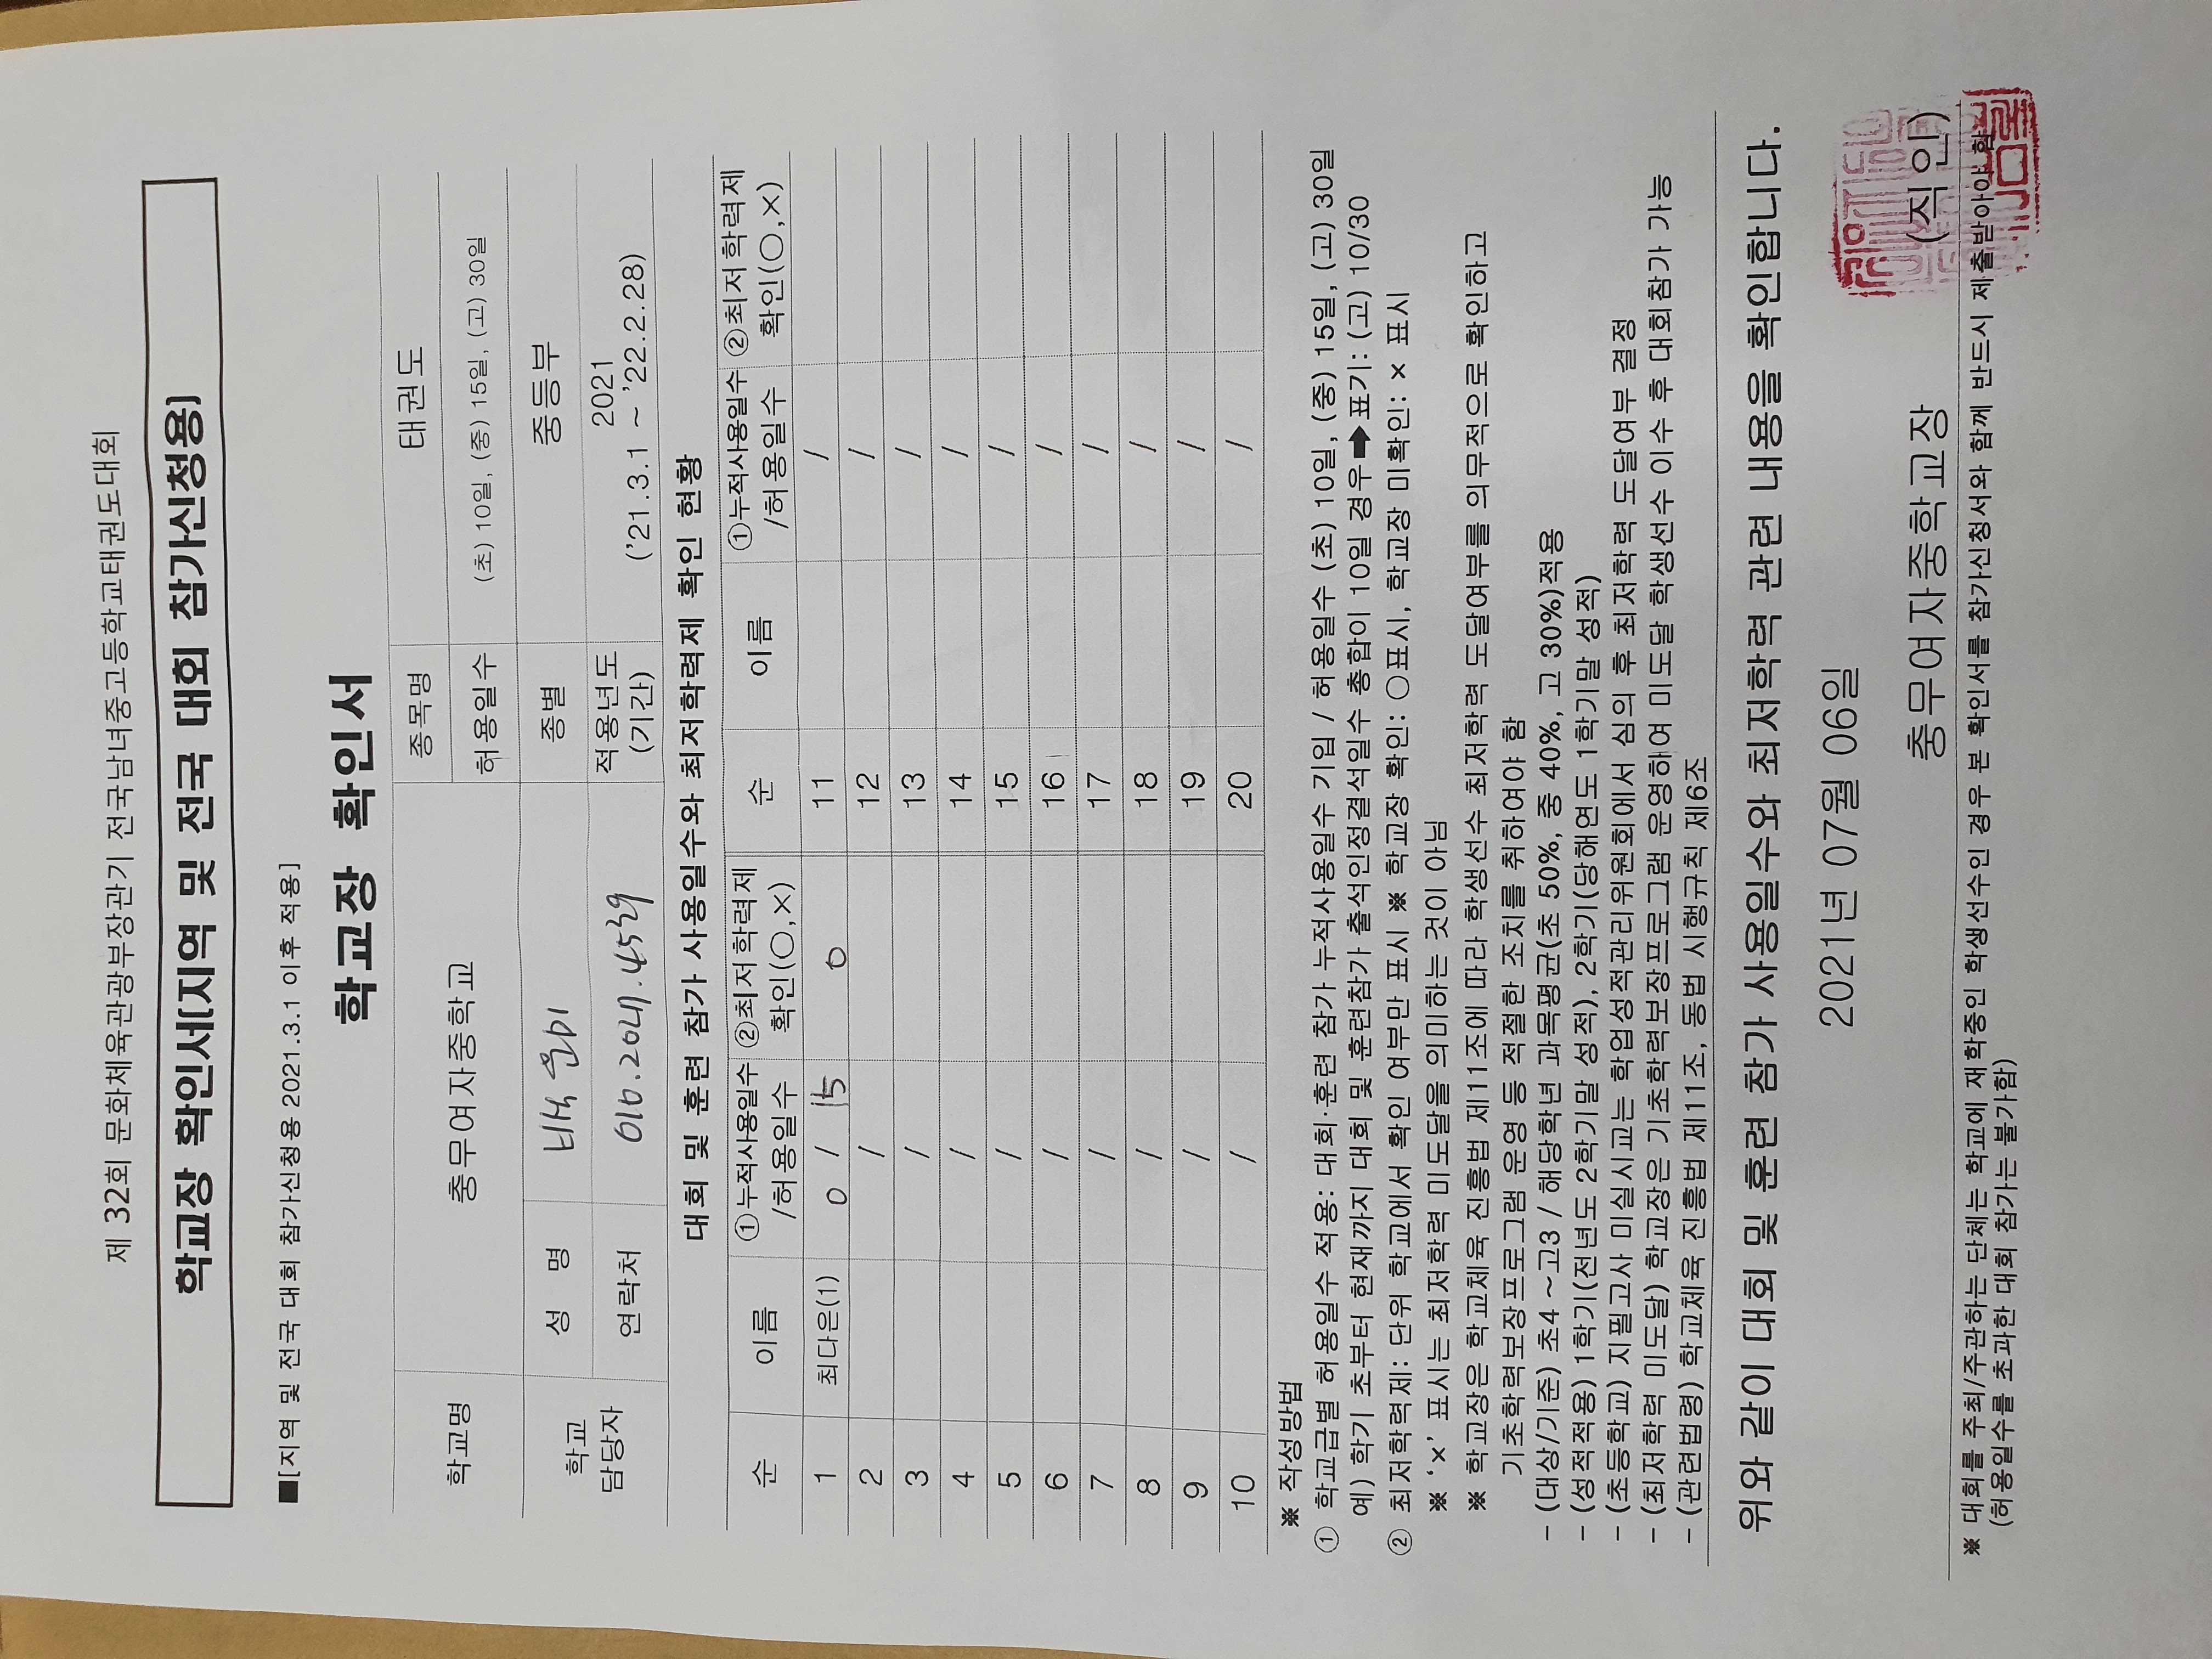 제 32회 문화체육관광부장관기 전국남녀중고등학교태권도대회
학교장 확인서[지역 및 전국 대회 참가신청용]
■[지역 및 전국 대회 참가신청용 2021.3.1 이후 적용]
학교장 확인서
학교명 충무여자중학교 종목명 태권도
허용일수 (초) 10일, (중) 15일, (고) 30일
학교 담당자 성 명 종별 중등부
연락처 적용년도 (기간) 2021 ('21.3.1 ~ '22.2.28)
대회 및 훈련 참가 사용일수와 최저학력제 확인 현황
순 이름 ①누적사용일수 /허용일수 ②최저학력제 확인(○,×) 순 이름 ①누적사용일수 /허용일수 ②최저학력제 확인(○,×)
1 최다은(1) 0 / 15 0 11 /
2 / 12 /
3 / 13 /
4 / 14 /
5 / 15 /
6 / 16 /
7 / 17 /
8 / 18 /
9 / 19 /
10 / 20 /
※ 작성방법
① 학교급별 허용일수 적용: 대회·훈련 참가 누적사용일수 기입 / 허용일수 (초) 10일, (중) 15일, (고) 30일
예) 학기 초부터 현재까지 대회 및 훈련참가 출석인정결석일수 총합이 10일 경우➡표기: (고) 10/30
② 최저학력제: 단위 학교에서 확인 여부만 표시 ※ 학교장 확인: ○표시, 학교장 미확인: × 표시
※ '×' 표시는 최저학력 미도달을 의미하는 것이 아님
※ 학교장은 학교체육 진흥법 제11조에 따라 학생선수 최저학력 도달여부를 의무적으로 확인하고
기초학력보장프로그램 운영 등 적절한 조치를 취하여야 함
- (대상/기준) 초4 ~고3 / 해당학년 과목평균(초 50%, 중 40%, 고 30%)적용
- (성적적용) 1학기(전년도 2학기말 성적), 2학기(당해연도 1학기말 성적)
- (초등학교) 지필고사 미실시교는 학업성적관리위원회에서 심의 후 최저학력 도달여부 결정
- (최저학력 미도달) 학교장은 기초학력보장프로그램 운영하여 미도달 학생선수 이수 후 대회참가 가능
- (관련법령) 학교체육 진흥법 제11조, 동법 시행규칙 제6조
위와 같이 대회 및 훈련 참가 사용일수와 최저학력 관련 내용을 확인합니다.
2021년 07월 06일
충무여자중학교장 (직인)
※ 대회를 주최/주관하는 단체는 학교에 재학중인 학생선수인 경우 본 확인서를 참가신청서와 함께 반드시 제출받아야 함
(허용일수를 초과한 대회 참가는 불가함)